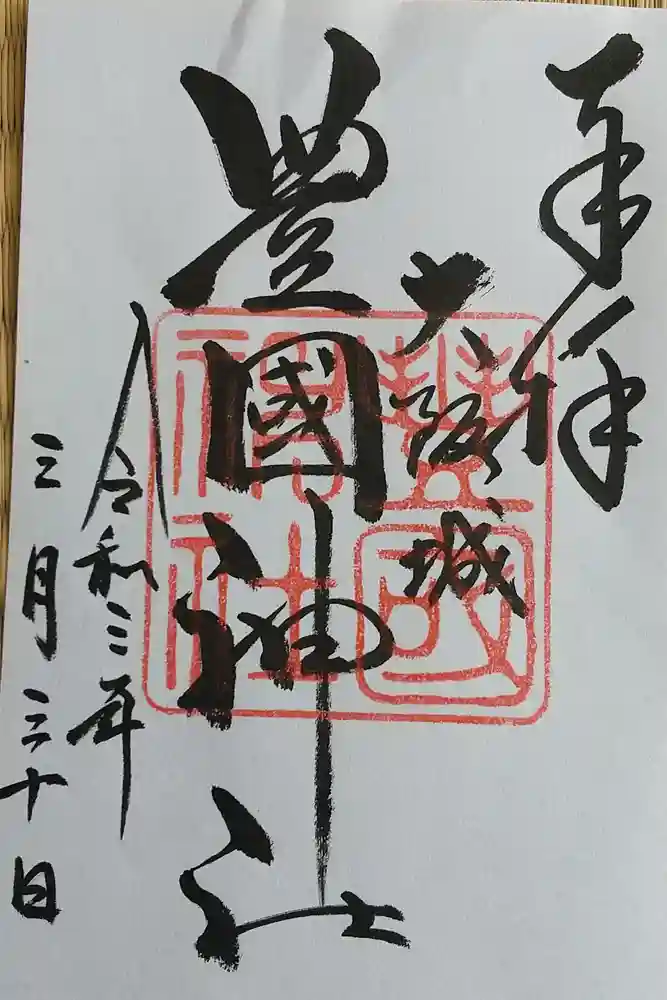 奉拝
大阪城
豊國神社
令和三年
三月三十日
豊國
神社